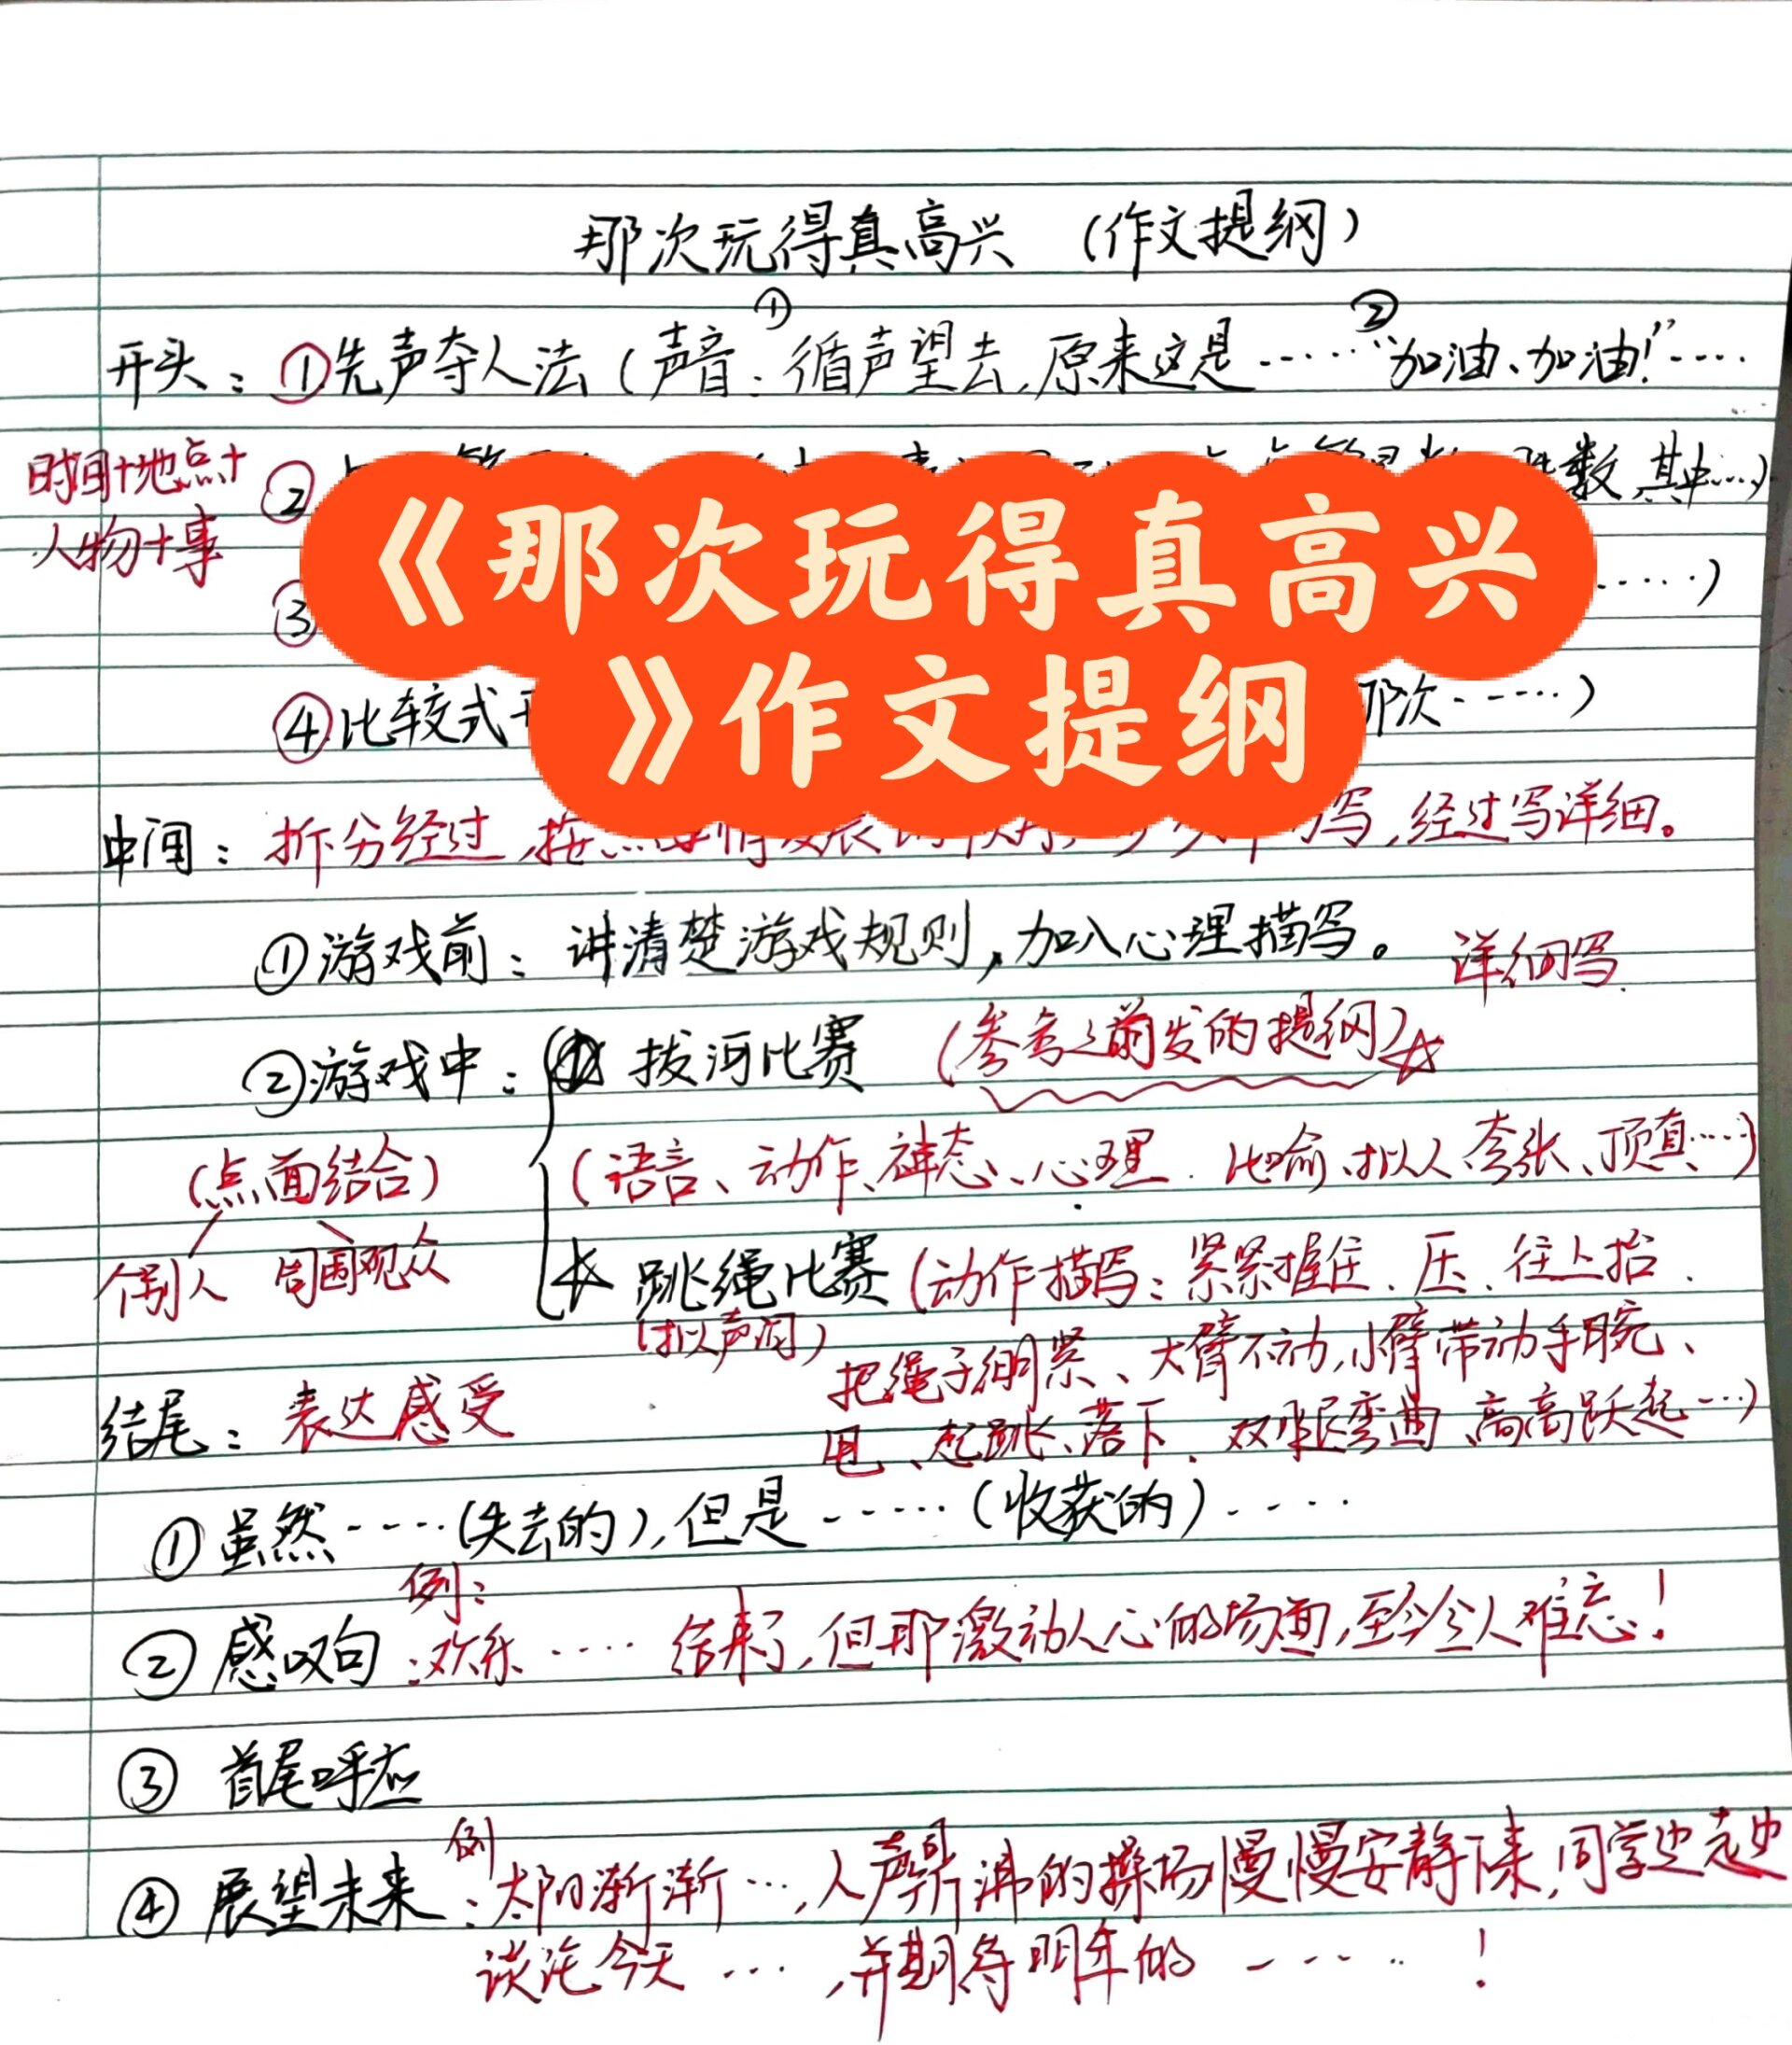 那次玩得真高兴（作文提纲）
开头：①先声夺人法（声音：①循声望去，原来这是……②“加油、加油！”……
时间+地点+
人物+事
②
数，其中…）
《那次玩得真高兴
③
……）
》作文提纲
④比较式
那次……）
中间：拆分经过，按
写，经过写详细。
①游戏前：讲清楚游戏规则，加入心理描写。
详细写
②游戏中：拔河比赛（参考之前发的提纲）
（点面结合）
（语言、动作、神态、心理、比喻、拟人、夸张、顶真……）
个别人 周围观众
跳绳比赛（动作描写：紧紧握住、压、往上抬、
（拟声词）
把绳子绷紧、大臂不动，小臂带动手腕、
甩、起跳、落下、双腿弯曲、高高跃起…）
结尾：表达感受
①虽然……（失去的），但是……（收获的）……
例：
②感叹句：欢乐……结束了，但那激动人心的场面，至今令人难忘！
③首尾呼应
例
④展望未来：太阳渐渐…，人声鼎沸的操场慢慢安静下来，同学边走边
谈论今天…，并期待明年的……！